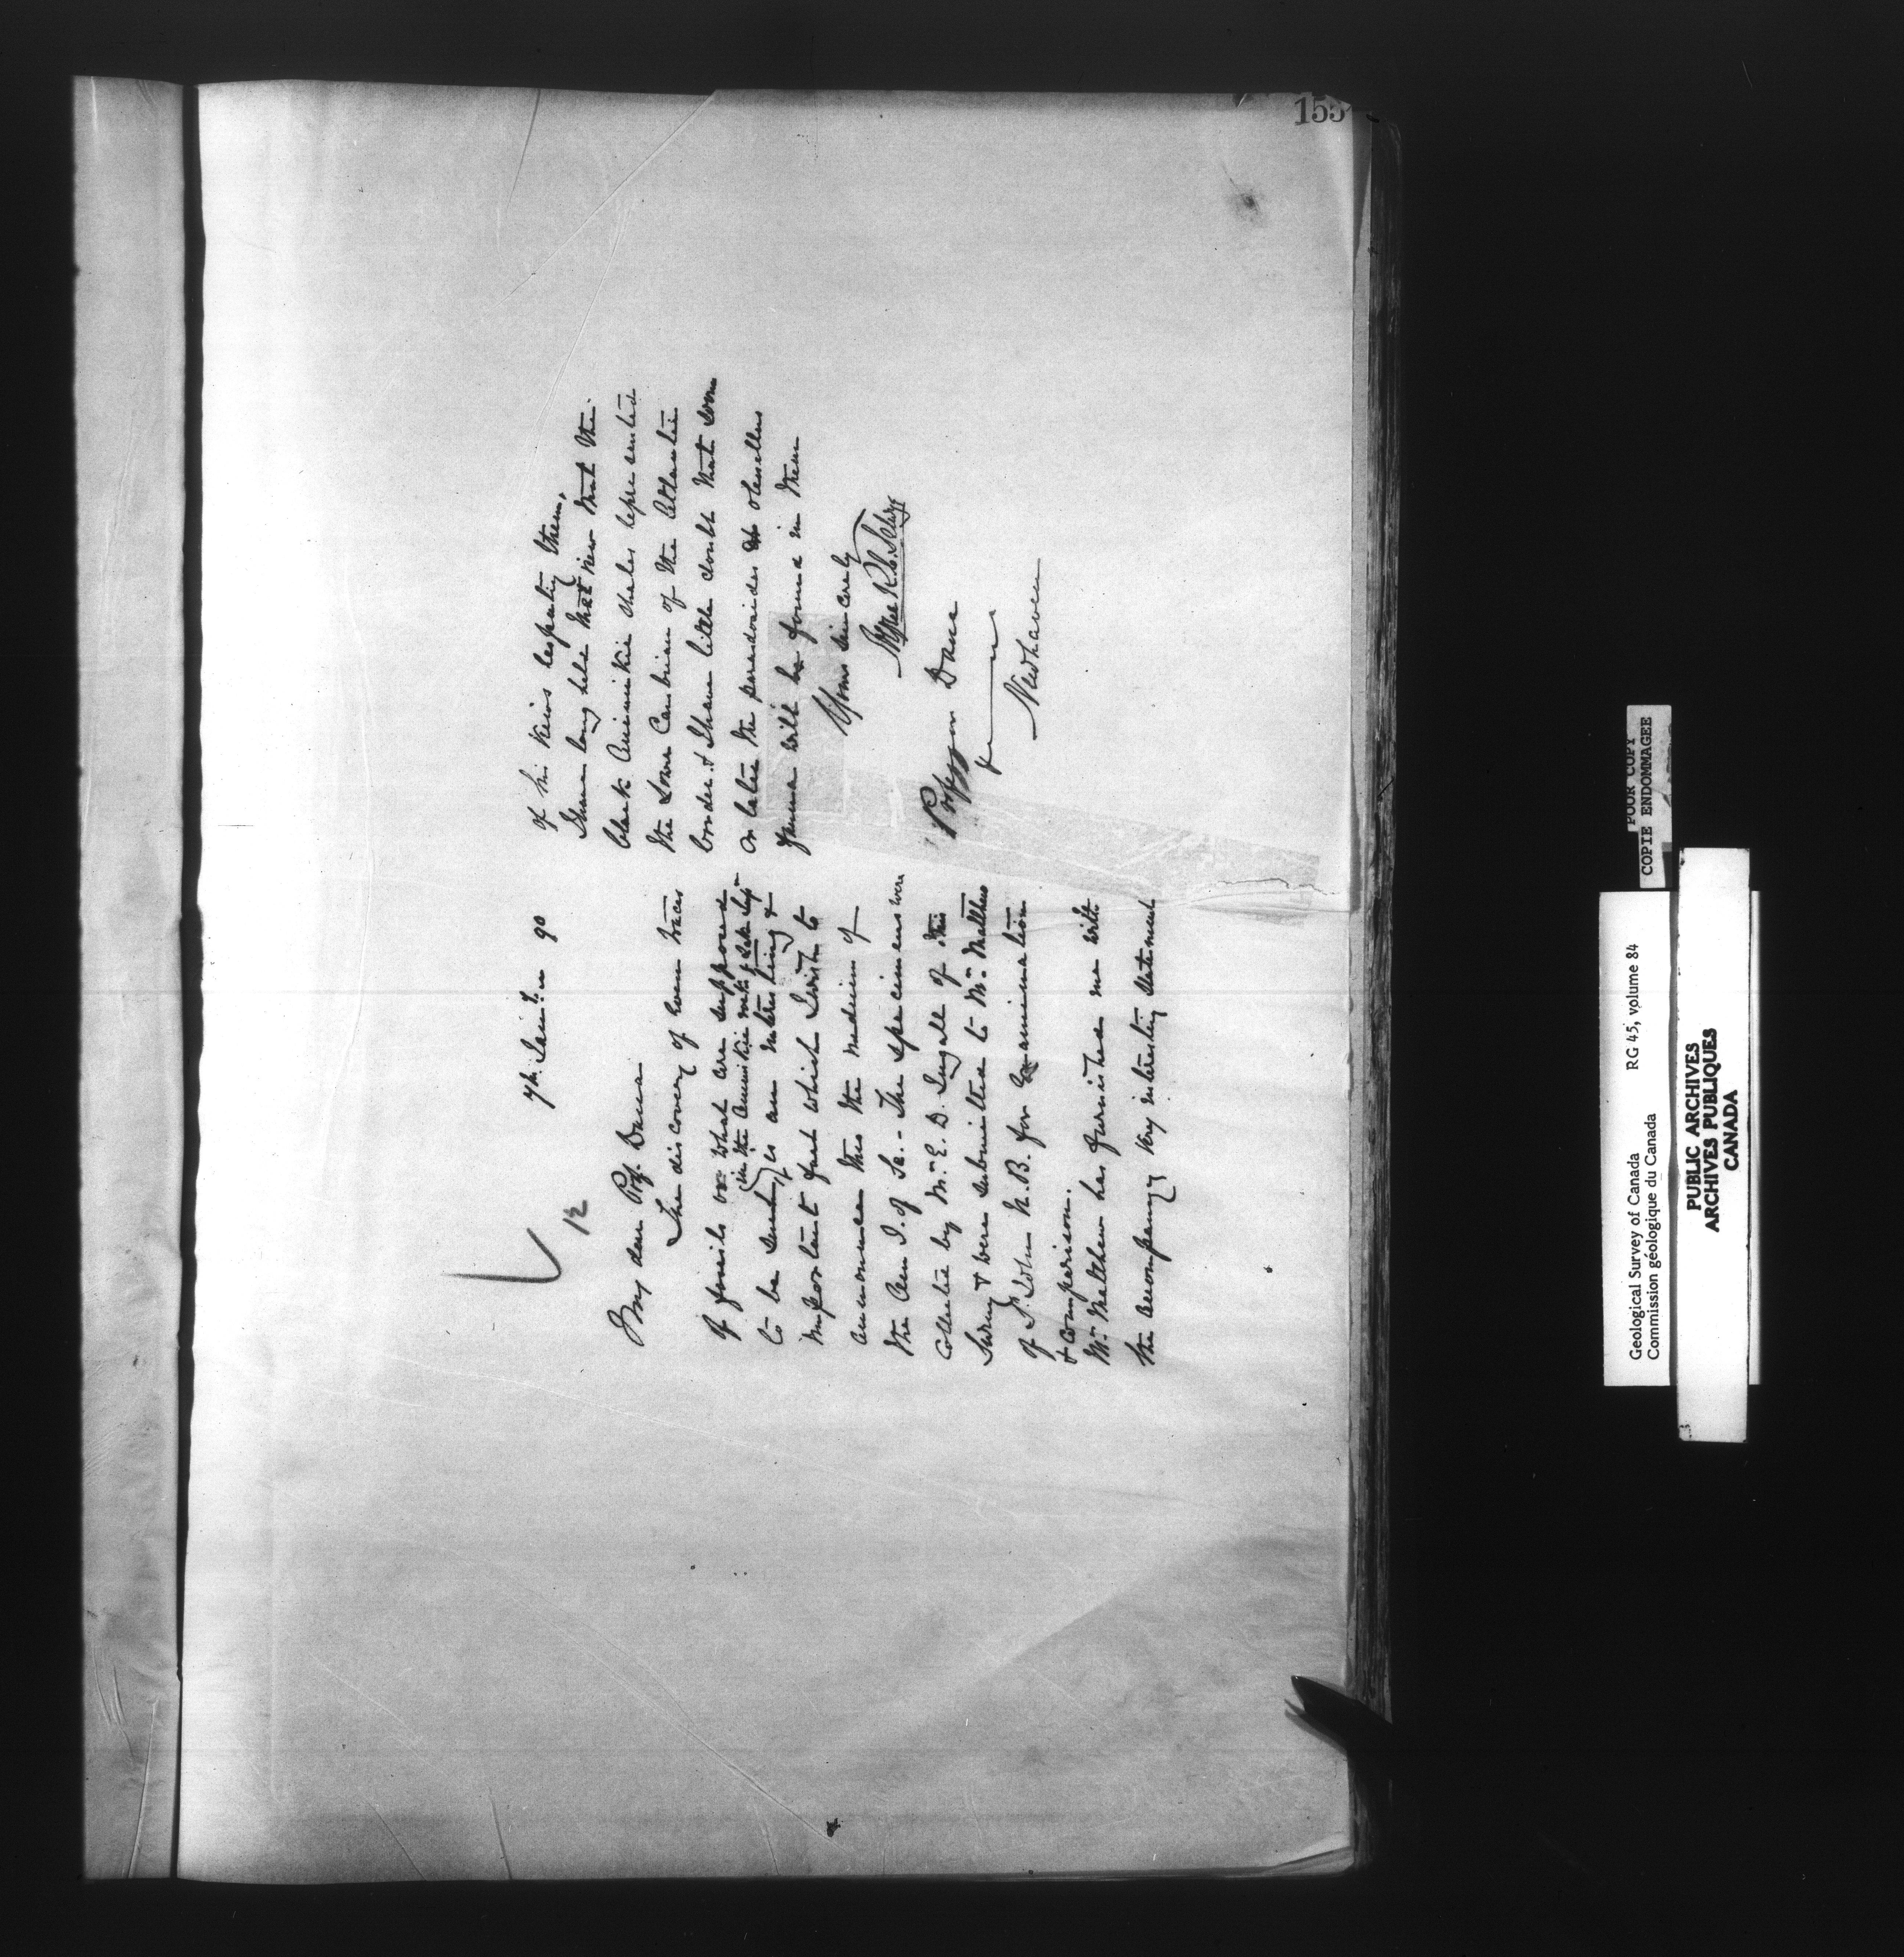 155
7th. Jan. 90
12
My dear Prof. Dana
The discovery of some traces
of fossils or what are supposed
to be such (in the Animikie rocks of Lake Supr
is an interesting &
important fact which I wish to
announce thro the medium of
the Am J. of Sc. - The specimens were
collected by Mr. E. D. Ingall of this
Survey & were submitted to Mr. Matthew
of St. John N.B. for Examination
& comparison.
Mr. Matthew has furnished me with
the accompanying very interesting statement
of his views respecting them.
I have long held that view that the
black Animikie shales represented
the Lower Cambrian of the Atlantic
border & I have little doubt that some
or later the paradoxides or olenellus
fauna will be found in them
Yours sincerely
Alfred R. C. Selwyn
Professor Dana
Newhaven
POOR COPY
COPIE ENDOMMAGEE
Geological Survey of Canada RG 45, volume 84
Commission géologique du Canada
PUBLIC ARCHIVES
ARCHIVES PUBLIQUES
CANADA